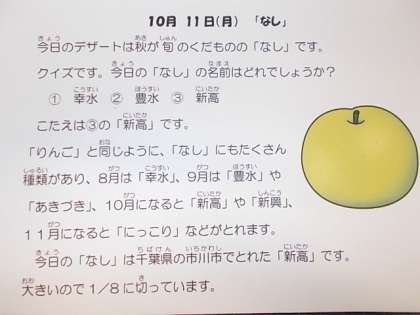 10月 11日(月) 「なし」
今日のデザートは秋が旬のくだものの「なし」です。
クイズです。今日の「なし」の名前はどれでしょうか?
① 幸水 ② 豊水 ③ 新高
こたえは③の「新高」です。
「りんご」と同じように、「なし」にもたくさん
種類があり、8月は「幸水」、9月は「豊水」や
「あきづき」、10月になると「新高」や「新興」、
11月になると「にっこり」などがとれます。
今日の「なし」は千葉県の市川市でとれた「新高」です。
大きいので1/8に切っています。